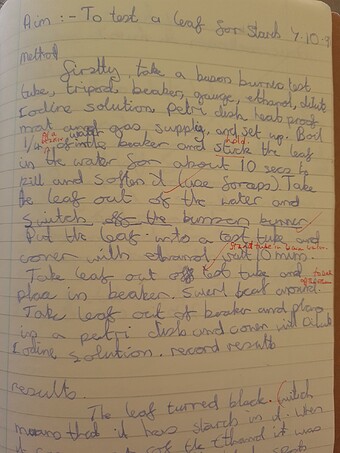 Aim :- To test a leaf for starch 4.10.9
method
Firstly, take a bacon burner test
tube, tripod, beaker, gauze, ethanol, dilute
Iodine solution, Petri dish heat proof
mat and gas supply, and set up. Boil
1/4 of in the beaker and stick the leaf
water hold
in the water for about 10 secs to
kill and soften it (use forceps). Take
the leaf out of the water and
switch off the bunsen burner.
Put the leaf into a test tube and
cover with ethanol, wait 10 mins.
Stand tube in
Take leaf out off test tube and
place in beaker. Swirl leaf around.
Take leaf out of beaker and place
in a petri dish and cover with Dilute
Iodine solution. record results
results.
The leaf turned black. (witch
means that it has starch in it. When
the ethanol it was